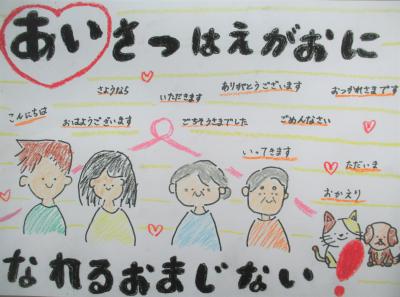 あいさつはえがおに
さようなら
いただきます
ありがとうございます
おつかれさまです
こんにちは
おはようございます
ごちそうさまでした
ごめんなさい
いってきます
ただいま
おかえり
なれるおまじない!